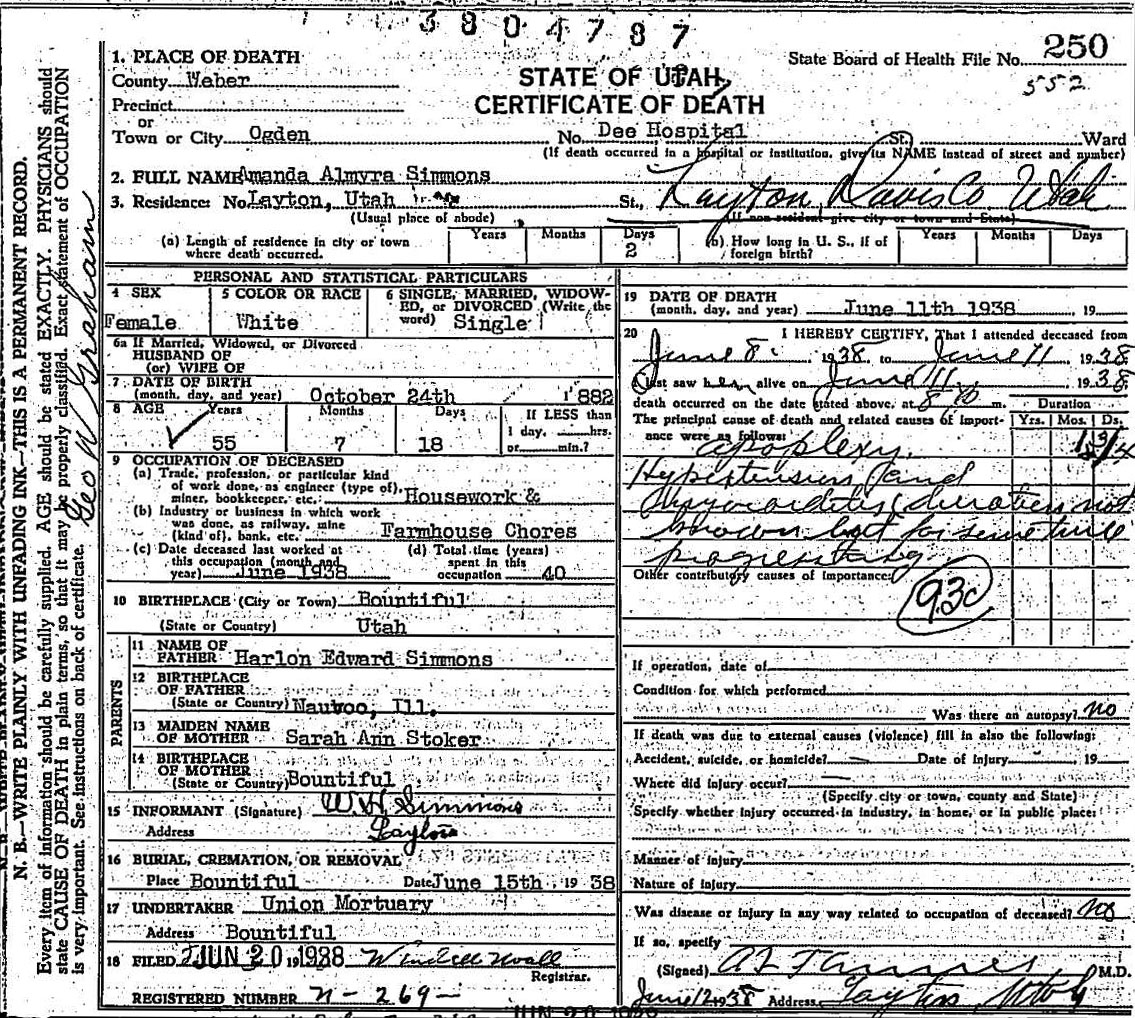 3804787
1. PLACE OF DEATH
State Board of Health File No. 250
552
County Weber
STATE OF UTAH
CERTIFICATE OF DEATH
Precinct
or
Town or City Ogden No. Dee Hospital St. Ward
(If death occurred in a hospital or institution, give its NAME instead of street and number)
2. FULL NAME Amanda Almyra Simmons
3. Residence: No. Layton, Utah St., Layton, Davis Co, Utah
(Usual place of abode) (If non-resident give city or town and State)
(a) Length of residence in city or town where death occurred. Years Months Days 2 (b) How long in U. S., if of foreign birth? Years Months Days
PERSONAL AND STATISTICAL PARTICULARS
4 SEX Female
5 COLOR OR RACE White
6 SINGLE, MARRIED, WIDOWED, or DIVORCED (Write the word) Single
6a If Married, Widowed, or Divorced
HUSBAND OF
(or) WIFE OF
7 DATE OF BIRTH
(month, day, and year) October 24th 1882
8 AGE Years 55 Months 7 Days 18 If LESS than 1 day, hrs. or min.?
9 OCCUPATION OF DECEASED
(a) Trade, profession, or particular kind
of work done, as engineer (type of),
miner, bookkeeper, etc. Housework &
(b) Industry or business in which work
was done, as railway, mine
(kind of), bank, etc. Farmhouse Chores
(c) Date deceased last worked at this occupation (month and year) June 1938
(d) Total time (years) spent in this occupation 40
10 BIRTHPLACE (City or Town) Bountiful
(State or Country) Utah
PARENTS
11 NAME OF
FATHER Harlon Edward Simmons
12 BIRTHPLACE
OF FATHER
(State or Country) Nauvoo, Ill.
13 MAIDEN NAME
OF MOTHER Sarah Ann Stoker
14 BIRTHPLACE
OF MOTHER
(State or Country) Bountiful
15 INFORMANT (Signature) W H Simmons
Address Layton
16 BURIAL, CREMATION, OR REMOVAL
Place Bountiful Date June 15th, 1938
17 UNDERTAKER Union Mortuary
Address Bountiful
18 FILED JUN 20 1938
Registrar.
REGISTERED NUMBER n-269-
19 DATE OF DEATH
(month, day, and year) June 11th 1938 19
20 I HEREBY CERTIFY, That I attended deceased from
June 8 1938, to June 11 1938
I last saw her alive on June 11 1938
death occurred on the date stated above, at 8 m. Duration
The principal cause of death and related causes of importance were as follows: Yrs. Mos. Ds.
apoplexy.
Hypertension and
Myocarditis (duration not
known but for sometime
progressing
Other contributory causes of importance:
93c
If operation, date of
Condition for which performed
Was there an autopsy? no
If death was due to external causes (violence) fill in also the following:
Accident, suicide, or homicide? Date of Injury 19
Where did injury occur?
(Specify city or town, county and State)
Specify whether injury occurred in industry, in home, or in public place:
Manner of injury
Nature of injury
Was disease or injury in any way related to occupation of deceased? No
If so, specify
(Signed) M.D.
June 12 1938 Address Layton, Utah
N. B.—WRITE PLAINLY WITH UNFADING INK—THIS IS A PERMANENT RECORD.
Every item of information should be carefully supplied. AGE should be stated EXACTLY. PHYSICIANS should
state CAUSE OF DEATH in plain terms, so that it may be properly classified. Exact statement of OCCUPATION
is very important. See instructions on back of certificate.
Geo W Graham